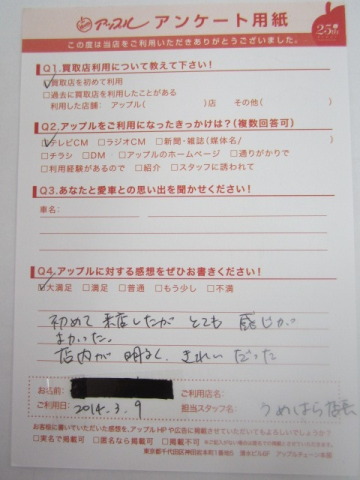 アップル アンケート用紙
25th
この度は当店をご利用いただきありがとうございました。
Q1.買取店利用について教えて下さい!
☑買取店を初めて利用
□過去に買取店を利用したことがある
利用した店舗: アップル( )店 その他( )
Q2.アップルをご利用になったきっかけは?(複数回答可)
☑テレビCM □ラジオCM □新聞・雑誌(媒体名/ )
□チラシ □DM □アップルのホームページ □通りがかりで
□利用経験があるので □紹介 □スタッフに誘われて
Q3.あなたと愛車との思い出を聞かせください!
車名:
Q4.アップルに対する感想をぜひお書きください!
☑大満足 □満足 □普通 □もう少し □不満
初めて来店したが とても 感じが
よかった。
店内が 明るく、きれいだった
お名前: ご利用店名:
ご利用日: 2014.3.9 担当スタッフ名: うめはら店長
お客様に書いていただいた感想を、アップルHPや広告に掲載させていただいてもよろしいでしょうか?
□実名で掲載可 □匿名なら掲載可 □掲載不可
東京都千代田区神田岩本町1番地 アップルチェーン本部